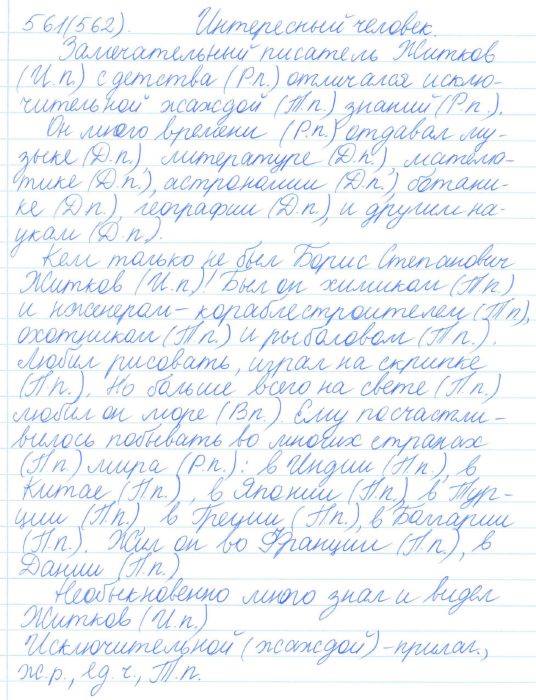 561(562). Интересный человек.
Замечательный писатель Житков
(И.п.) с детства (Р.п.) отличался исклю-
чительной жаждой (Т.п.) знаний (Р.п.).
Он много времени (Р.п.) отдавал му-
зыке (Д.п.), литературе (Д.п.), матема-
тике (Д.п.), астрономии (Д.п.), ботани-
ке (Д.п.), географии (Д.п.), и другим на-
укам (Д.п.).
Кем только не был Борис Степанович
Житков (И.п.)! Был он химиком (Т.п.)
и инженером - кораблестроителем (Т.п),
охотником (Т.п.) и рыболовом (Т.п.).
Любил рисовать, играл на скрипке
(П.п.). Но больше всего на свете (П.п.)
любил он море (В.п.). Ему посчастли-
вилось побывать во многих странах
(П.п.) мира (Р.п.): в Индии (П.п.), в
Китае (П.п.), в Японии (П.п.), в Тур-
ции (П.п.) в Греции (П.п.), в Болгарии
(П.п.). Жил он во Франции (П.п.), в
Дании (П.п.)
Необыкновенно много знал и видел
Житков (И.п.)
Исключительной (жаждой) - прилаг.,
ж.р., ед.ч., Т.п.